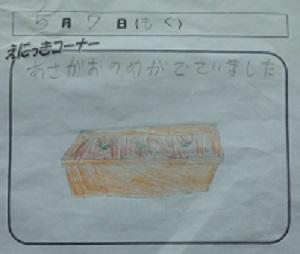 5月7日(もく)
えにっきコーナー
あさがおのめがでていました